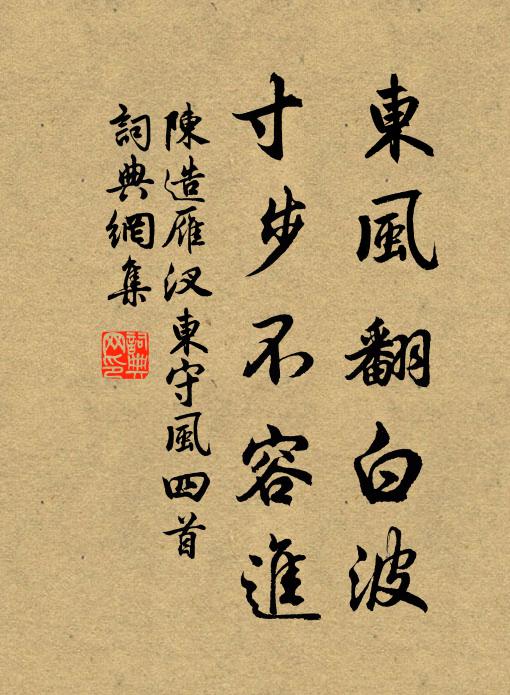 東風翻白波
寸步不容進
陳造雁汊東守風四首
詞典網集
詞典網印